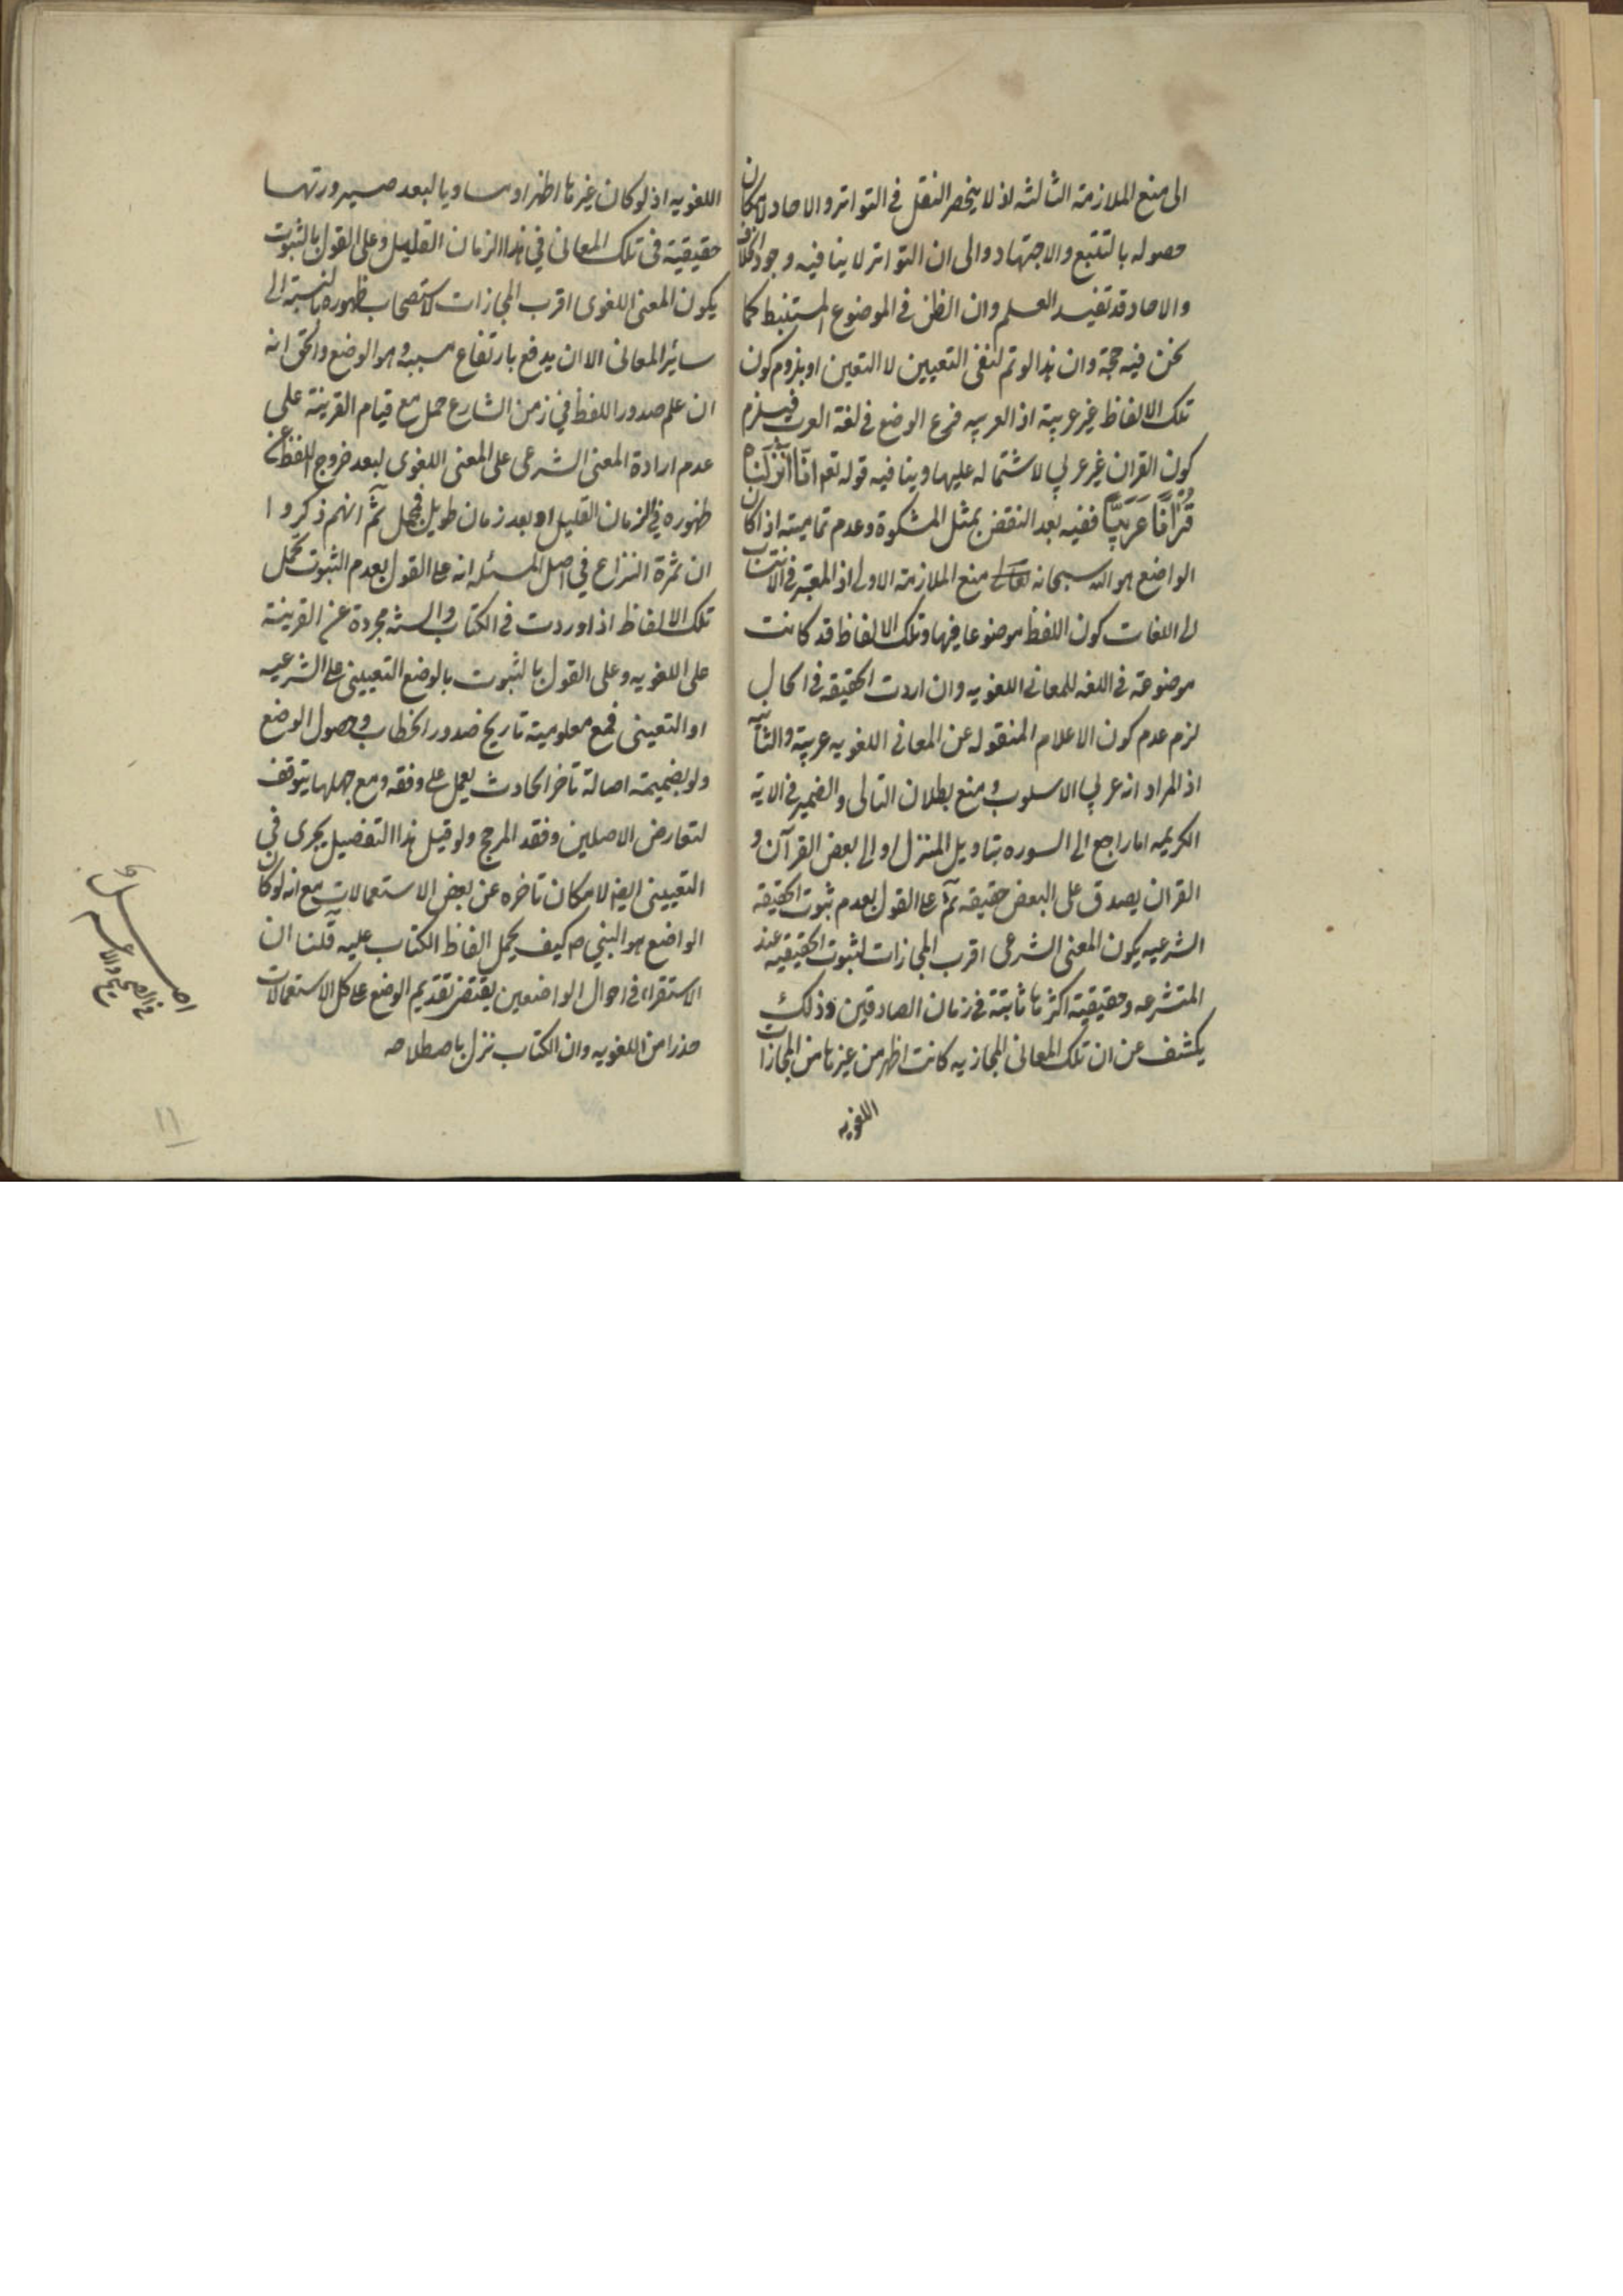 الى منع الملازمة الثالثه اذ لا ينحصر النقل فى التواتر والاحاد لامكان
حصوله بالتتبع والاجتهاد والى ان التواتر لا ينافيه وجود الخلاف
والاحاد قد تفيد العلم وان الظن فى الموضوع المستنبط كما
نحن فيه حجة وان هذا لو تم لنفى التعيين لا التعين او بلزوم كون
تلك الالفاظ غير عربية اذ العربيه فرع الوضع فى لغة العرب فيلزم
كون القران غير عربي لاشتماله عليها وينافيه قوله تعم انّا أنزَلنَاه
قُرآنًا عَرَبِيًّا ففيه بعد النقض بمثل المشكوة وعدم تماميته اذا كان
الواضع هو الله سبحانه تعالى منع الملازمة الاولى اذ المعتبر فى الانتساب
الى اللغات كون اللفظ موضوعا فيها وتلك الالفاظ قد كانت
موضوعة فى اللغه للمعانى اللغويه وان اردت الحقيقه فى الحال
لزم عدم كون الاعلام المنقوله عن المعانى اللغويه عربية والثانيه
اذ المراد انه عربي الاسلوب ومنع بطلان التالى والضمير فى الاية
الكريمه اما راجع الى السوره بتاويل المنزل او الى بعض القرآن و
القران يصدق على البعض حقيقه ثمّ على القول بعدم ثبوت الحقيقه
الشرعيه يكون المعنى الشرعى اقرب المجازات لثبوت الحقيقيه عند
المتشرعه وحقيقية اكثرها ثابتة فى زمان الصادقين وذلك
يكشف عن ان تلك المعانى المجازيه كانت اظهر من غيرها من المجازات
اللغويه
اللغويه اذ لو كان غيرها اظهر او مساويا لبعد صيرورتها
حقيقية فى تلك المعانى فى هذا الزمان القليل وعلى القول بالثبوت
يكون المعنى اللغوى اقرب المجازات لاستصحاب ظهوره بالنسبة الى
سائر المعانى الا ان يدفع بارتفاع سببه وهو الوضع والحق انه
ان علم صدور اللفظ فى زمن الشارع حمل مع قيام القرينة على
عدم ارادة المعنى الشرعى على المعنى اللغوى لبعد خروج اللفظ عن
ظهوره فى الزمان القليل او بعد زمان طويل فمجمل ثمّ انهم ذكروا
ان ثمرة النزاع في اصل المسئله انه على القول بعدم الثبوت تحمل
تلك الالفاظ اذا وردت فى الكتاب والسنه مجردة عن القرينة
على اللغويه وعلى القول بالثبوت بالوضع التعيينى على الشرعيه
او التعينى فمع معلومية تاريخ صدور الخطاب وحصول الوضع
ولو بضميمة اصالة تاخر الحادث يعمل على وفقه ومع جهلها يتوقف
لتعارض الاصلين وفقد المرجح ولو قيل هذا التفصيل يجرى فى
التعيينى ايضا لامكان تاخره عن بعض الاستعمالات مع انه لو كان
الواضع هو النبي ص كيف يحمل الفاظ الكتاب عليه قلنا ان
الاستقراء فى احوال الواضعين يقتضى تقديم الوضع على كل الاستعمالات
حذرا من اللغويه وان الكتاب نزل باصطلاحه
اصل
فى الصحيح والاعم
١١